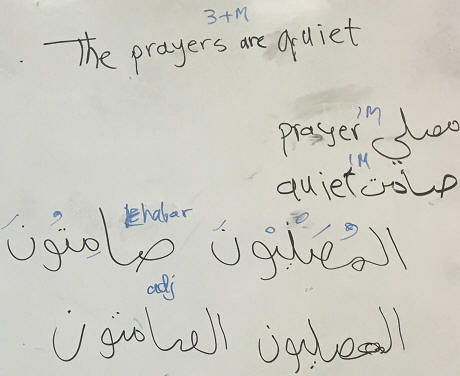 3+M
The prayers are quiet
1M
prayer مصلي
1M
quiet صامت
khabar
المُصَلِيُونَ صامِتُونَ
adj
المصليون الصامتون